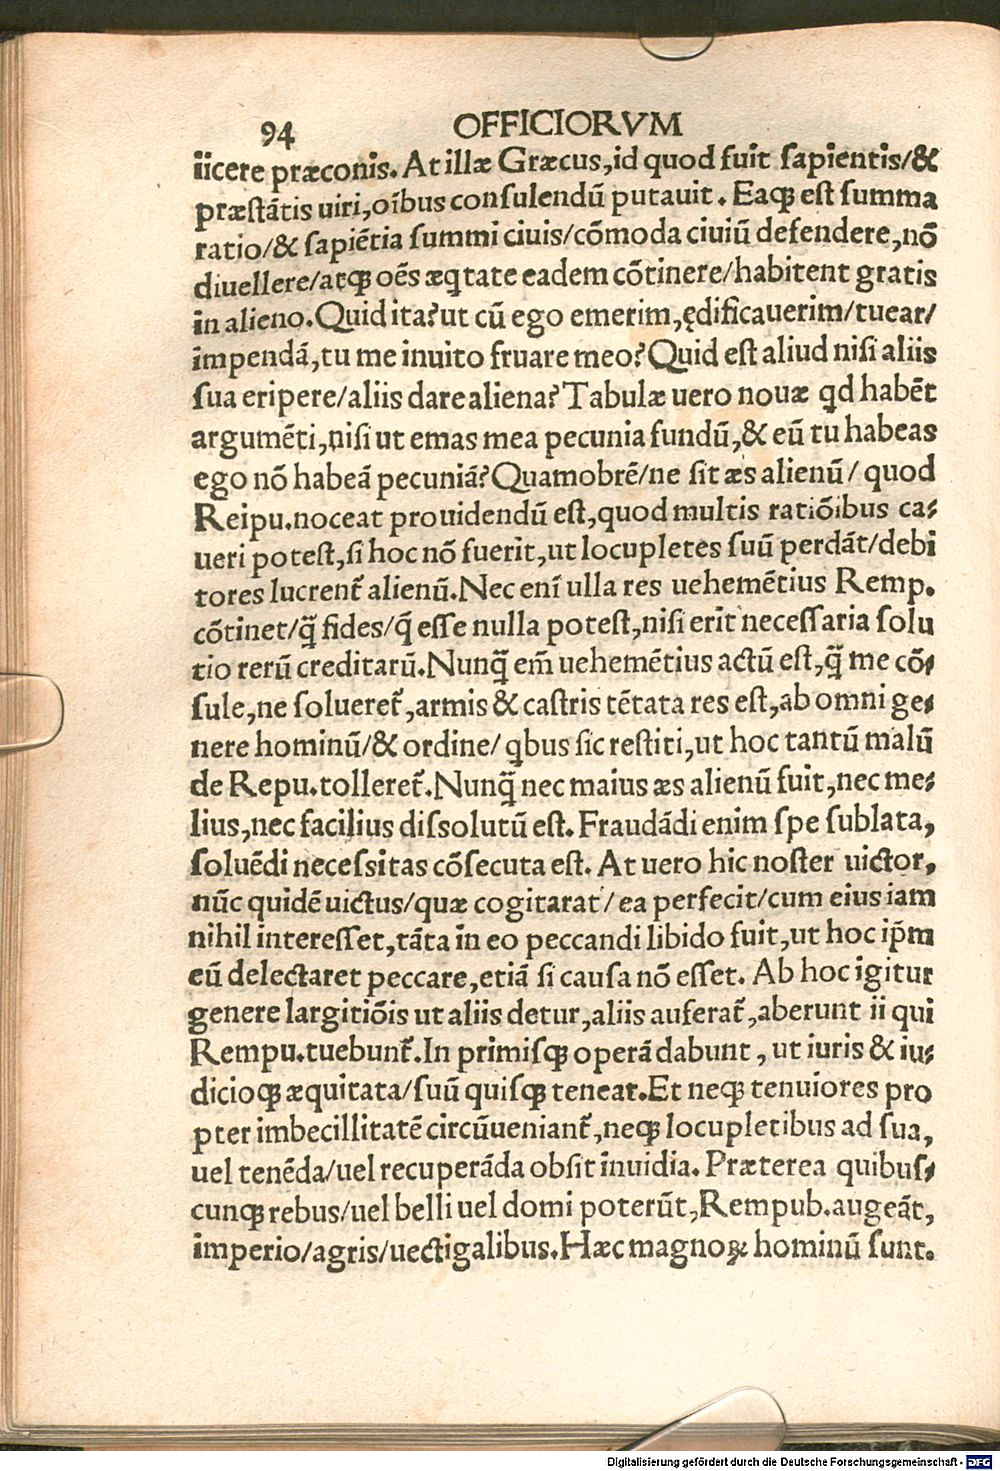 94 OFFICIORVM
iicere præconis. At illæ Græcus, id quod fuit sapientis/&
præstãtis uiri, oĩbus consulendũ putauit. Eaqꝫ est summa
ratio/& sapiẽtia summi ciuis/cõmoda ciuiũ defendere, nõ
diuellere/atqꝫ oẽs æq̃tate eadem cõtinere/habitent gratis
in alieno. Quid ita? ut cũ ego emerim, ędificauerim/tuear/
impendã, tu me inuito fruare meo? Quid est aliud nisi aliis
sua eripere/aliis dare aliena? Tabulæ uero nouæ qd habẽt
argumẽti, nisi ut emas mea pecunia fundũ, & eũ tu habeas
ego nõ habeã pecuniã? Quamobrẽ/ne sit æs alienũ/ quod
Reipu. noceat prouidendũ est, quod multis ratiõibus ca⸗
ueri potest, si hoc nõ fuerit, ut locupletes suũ perdãt/debi
tores lucrent̃ alienũ. Nec enĩ ulla res uehemẽtius Remp.
cõtinet/q̃ fides/q̃ esse nulla potest, nisi erit necessaria solu
tio rerũ creditarũ. Nunq̃ em̃ uehemẽtius actũ est, q̃ me cõ⸗
sule, ne solueret̃, armis & castris tẽtata res est, ab omni ge⸗
nere hominũ/& ordine/ qbus sic restiti, ut hoc tantũ malũ
de Repu. tolleret̃. Nunq̃ nec maius æs alienũ fuit, nec me⸗
lius, nec facilius dissolutũ est. Fraudãdi enim spe sublata,
soluẽdi necessitas cõsecuta est. At uero hic noster uictor,
nũc quidẽ uictus/quæ cogitarat/ea perfecit/cum eius iam
nihil interesset, tãta in eo peccandi libido fuit, ut hoc ip̃m
eũ delectaret peccare, etiã si causa nõ esset. Ab hoc igitur
genere largitiõis ut aliis detur, aliis auferat̃, aberunt ii qui
Rempu. tuebunt̃. In primisqꝫ operã dabunt, ut iuris & iu⸗
dicioqꝫ æquitata/suũ quisqꝫ teneat. Et neqꝫ tenuiores pro
pter imbecillitatẽ circũueniant̃, neqꝫ locupletibus ad sua,
uel tenẽda/uel recuperãda obsit inuidia. Præterea quibus⸗
cunqꝫ rebus/uel belli uel domi poterũt, Rempub. augeãt,
imperio/agris/uectigalibus. Hæc magnoꝝ hominũ sunt.
Digitalisierung gefördert durch die Deutsche Forschungsgemeinschaft - DFG